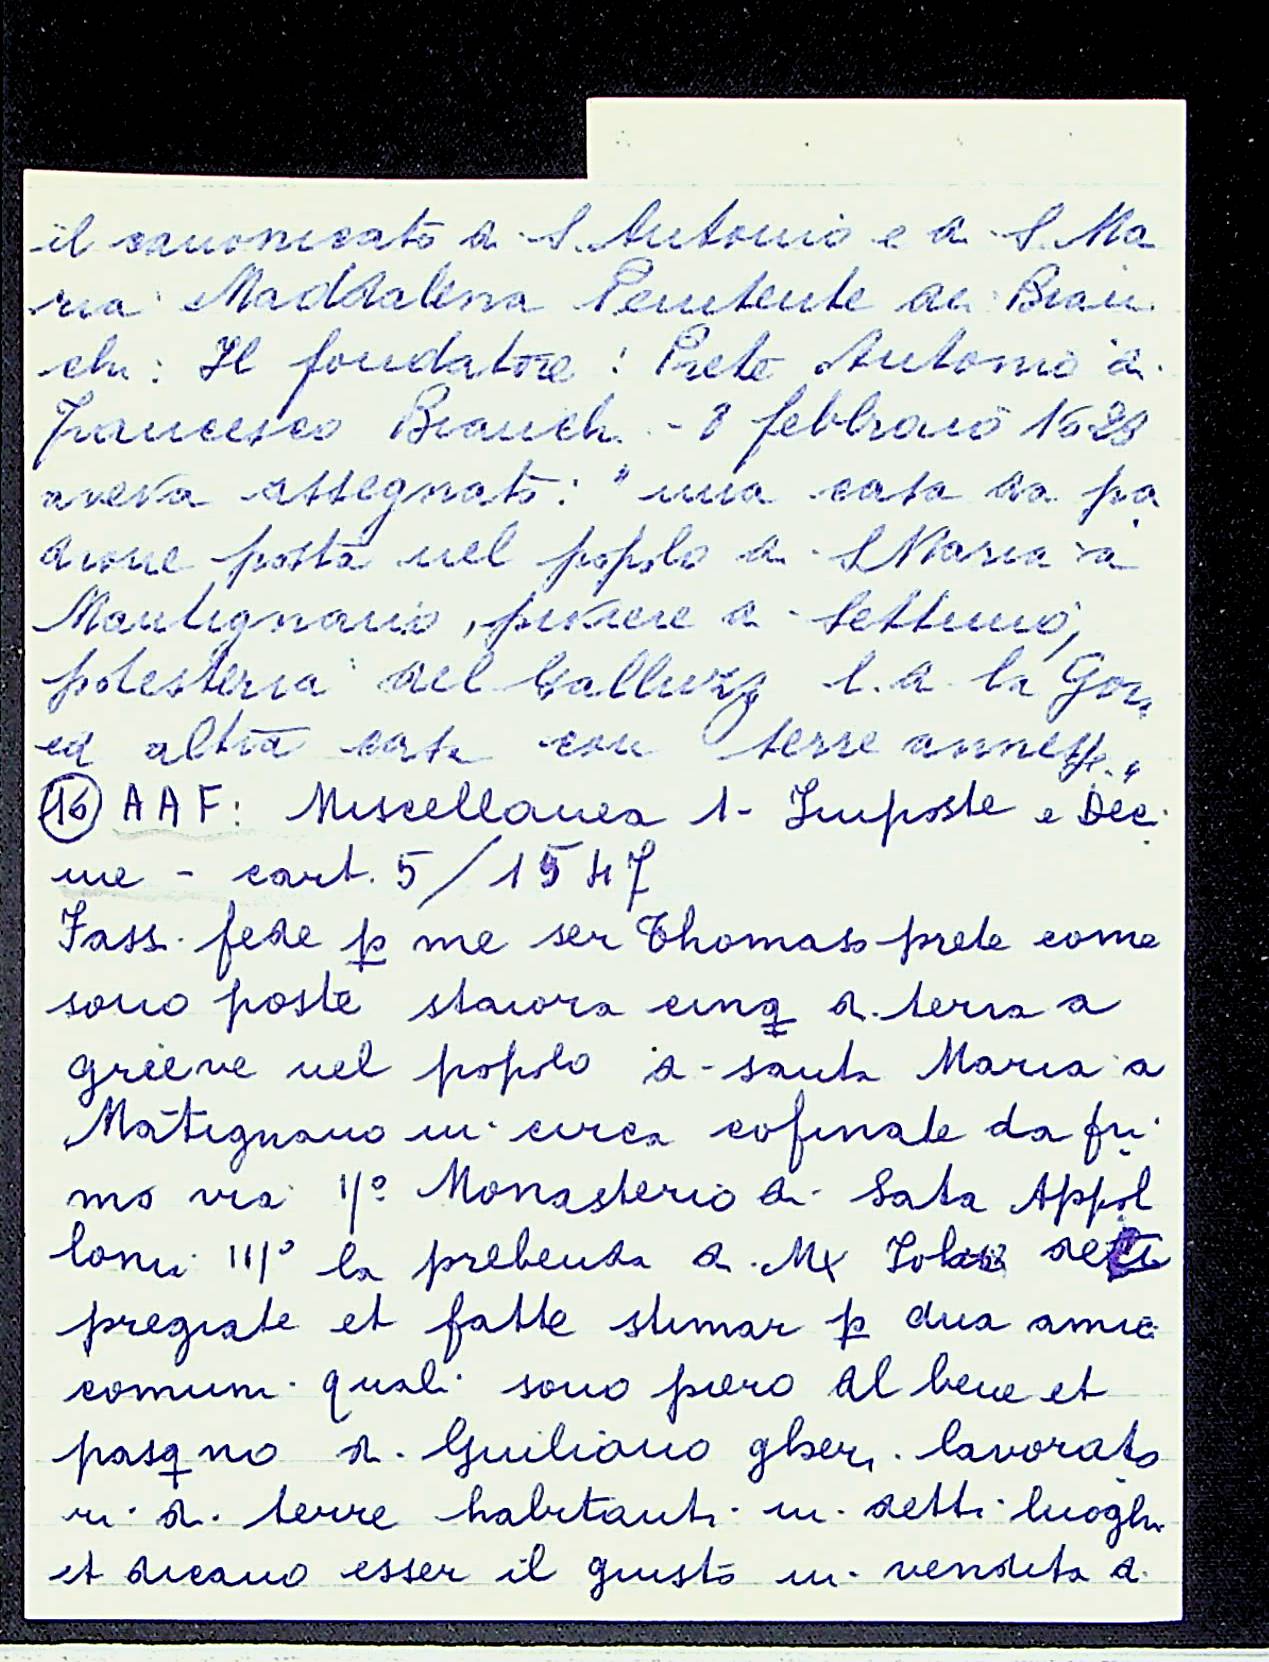 il canonicato di S. Antonio e di S. Ma
ria Maddalena Penitente dei Bian
chi: Il fondatore: Prete Antonio di
Francesco Bianchi - 8 febbraio 1628
aveva assegnato: "una casa da pa
drone posta nel popolo di S Maria a
Mantignano, piviere di Settimo,
potesteria del Galluzzo l.d. la
ed altra casa con terre annesse"
(16) AAF: Miscellanea 1 - Imposte e Deci
me - cart. 5/1547
Fass. fede p me ser Thomaso prete come
sono poste staiora cinq di terra a
grieve nel popolo di santa Maria a
Mātignano in circa cofinate da pri
mo via IIº Monasterio di Sata Appol
loni IIIº la prebenda di
pregiate et fatte stimar p dua amici
comuni quali sono piero del bene et
pasqno di Guiliano gheri lavorato
ri di terre habitanti in detti luoghi
et dicano esser il giusto in vendita di